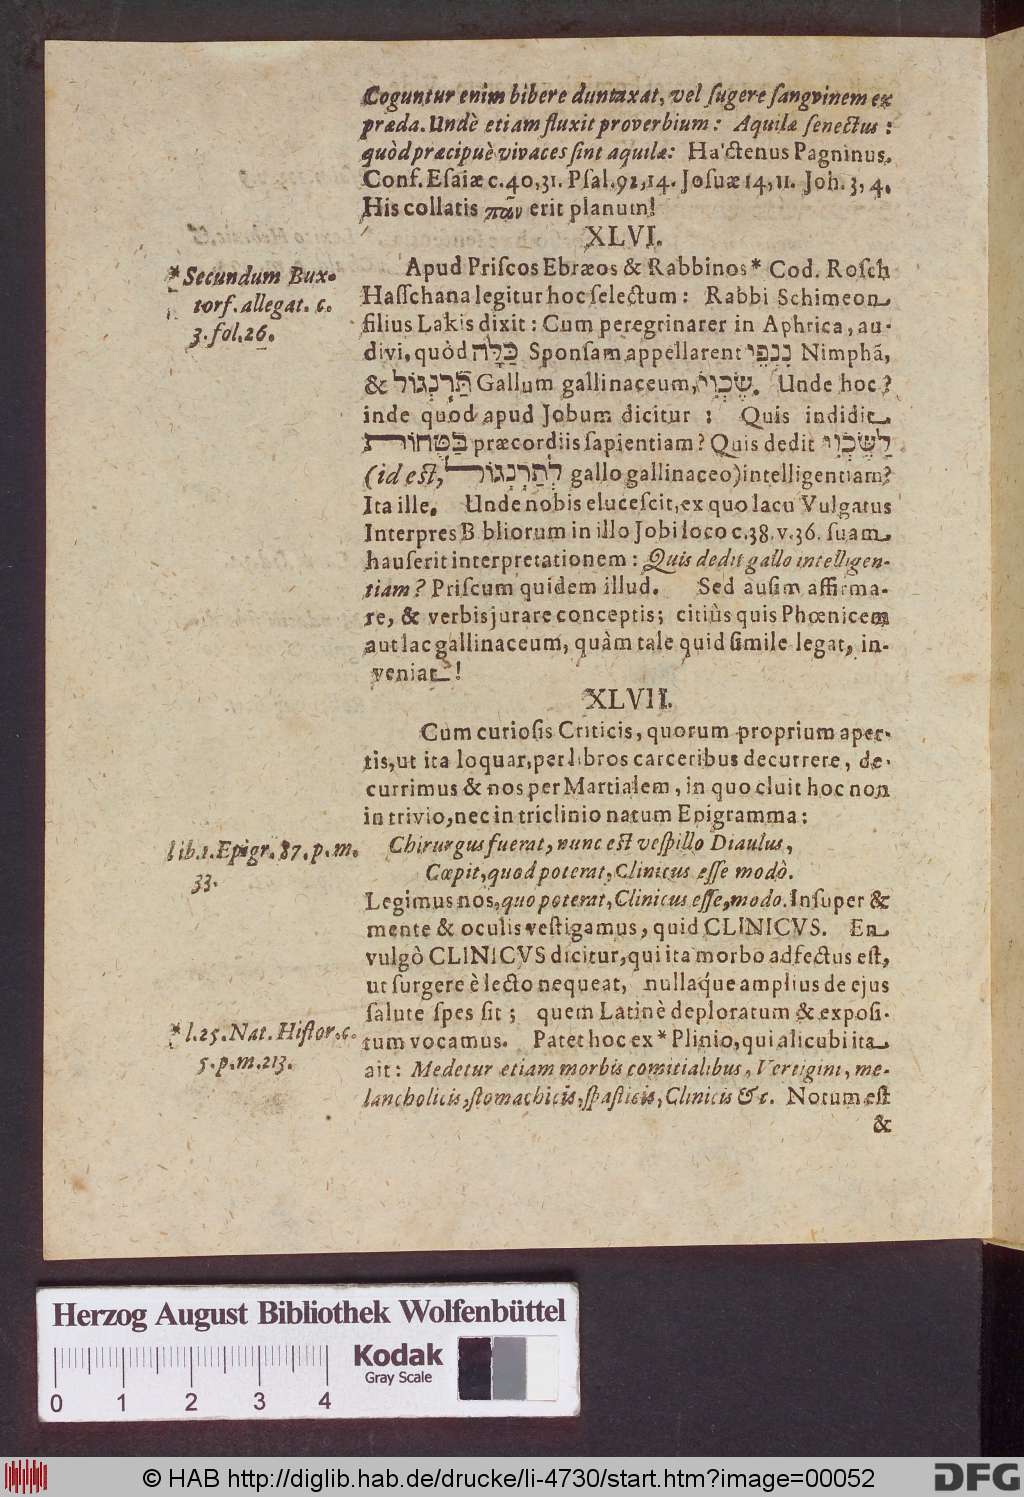 Coguntur enim bibere duntaxat, vel ſugere ſangvinem ex
præda. Undè etiam fluxit proverbium: Aquilæ ſenectus:
quòd præcipuè vivaces ſint aquilæ: Ha'ctenus Pagninus.
Conf. Eſaiæ c. 40, 31. Pſal. 92, 14. Joſuæ 14, 11. Joh. 3, 4.
His collatis πᾶν erit planum!
XLVI.
Apud Priſcos Ebræos & Rabbinos* Cod. Roſch
* Secundum Bux-
torf. allegat. c.
3. fol. 26.
Haſſchana legitur hoc ſelectum: Rabbi Schimeon
filius Lakis dixit: Cum peregrinarer in Aphrica, au-
divi, quòd כַּלָּה Sponſam appellarent נִנְפֵי Nimphā,
& תַּרְנְגוֹל Gallum gallinaceum, שֶׂכְוִי. Unde hoc?
inde quod apud Jobum dicitur: Quis indidit
בַּטֻּחוֹת præcordiis ſapientiam? Quis dedit לַשֶּׂכְוִי
(id eſt, לְתַרְנְגוֹל gallo gallinaceo) intelligentiam?
Ita ille. Unde nobis eluceſcit, ex quo lacu Vulgatus
Interpres B bliorum in illo Jobi loco c. 38. v. 36. ſuam
hauſerit interpretationem: Quis dedit gallo intelligen-
tiam? Priſcum quidem illud. Sed auſim affirma-
re, & verbis jurare conceptis; citiùs quis Phœnicem
aut lac gallinaceum, quàm tale quid ſimile legat, in-
veniat!
XLVII.
Cum curioſis Criticis, quorum proprium aper-
tis, ut ita loquar, per libros carceribus decurrere, de-
currimus & nos per Martialem, in quo cluit hoc non
in trivio, nec in triclinio natum Epigramma:
lib. 1. Epigr. 87. p. m.
33.
Chirurgus fuerat, nunc eſt veſpillo Diaulus,
Cœpit, quod poterat, Clinicus eſſe modò.
Legimus nos, quo poterat, Clinicus eſſe, modo. Inſuper &
mente & oculis veſtigamus, quid CLINICVS. En
vulgò CLINICVS dicitur, qui ita morbo adfectus eſt,
ut ſurgere è lecto nequeat, nullaq́ue amplius de ejus
ſalute ſpes ſit; quem Latinè deploratum & expoſi-
tum vocamus. Patet hoc ex* Plinio, qui alicubi ita
* l. 25. Nat. Hiſtor. c.
5. p. m. 213.
ait: Medetur etiam morbis comitialibus, Vertigini, me-
lancholicis, ſtomachicis, ſpaſticis, Clinicis &c. Notum eſt
&
Herzog August Bibliothek Wolfenbüttel
Kodak
Gray Scale
0 1 2 3 4
© HAB http://diglib.hab.de/drucke/li-4730/start.htm?image=00052
DFG